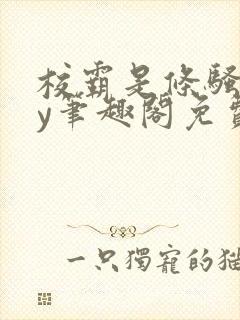 校霸是条骚
y筆趣閣免費
一只獨寵的猫